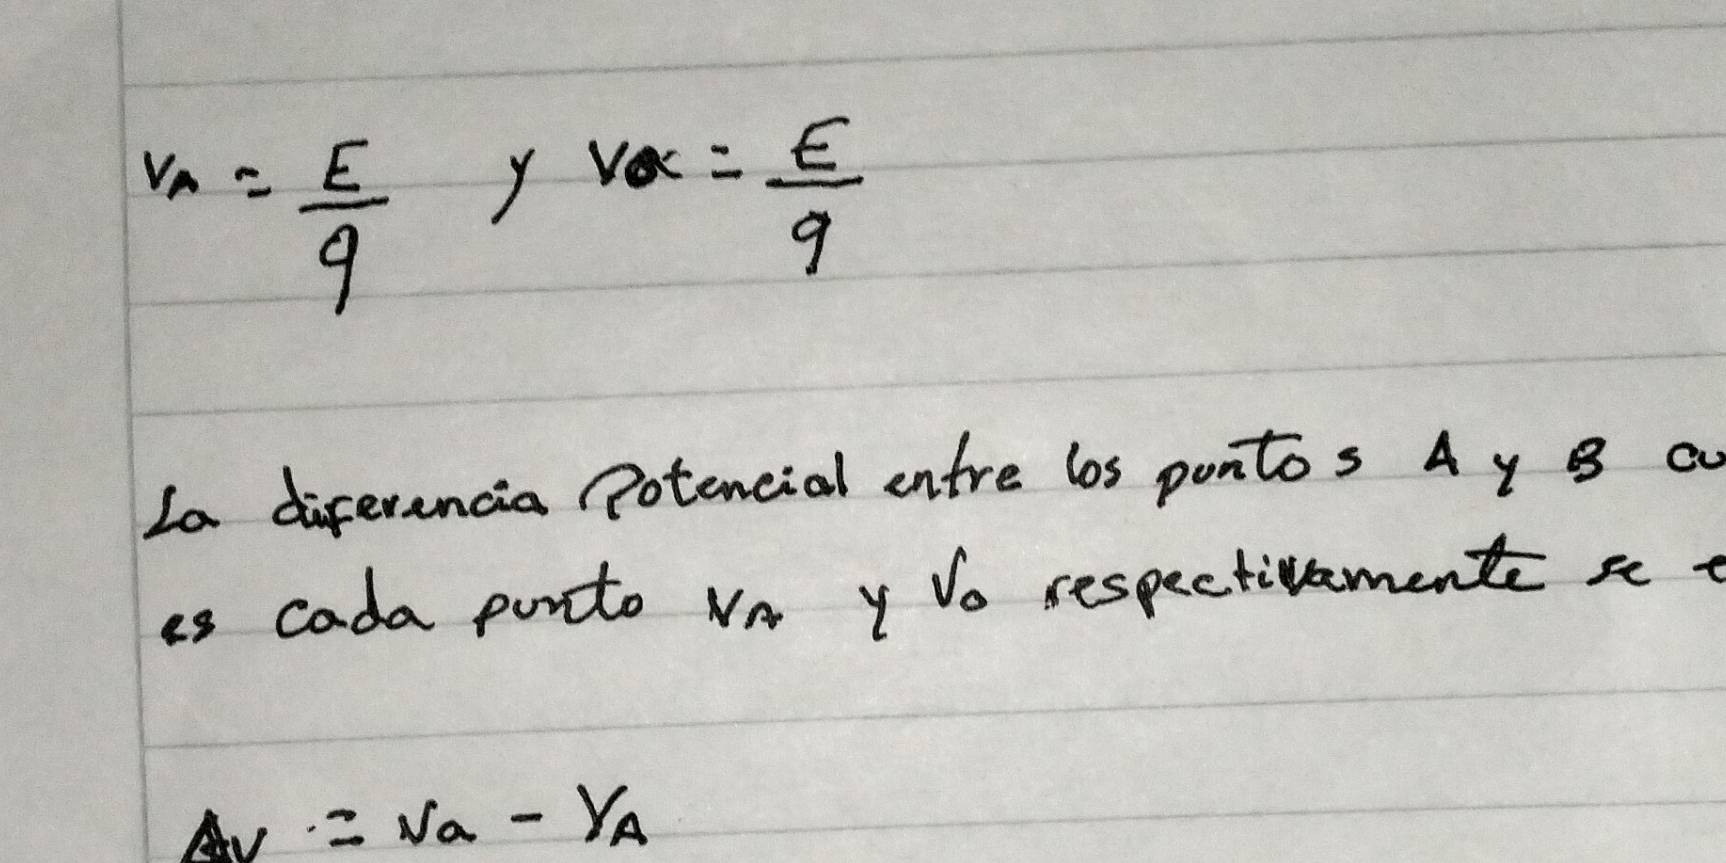 VA = E/q y Vα = E/q
La diferencia Potencial entre los puntos A y B cu
es cada punto VA y Vo respectivamente se e
ΔV = Va - VA